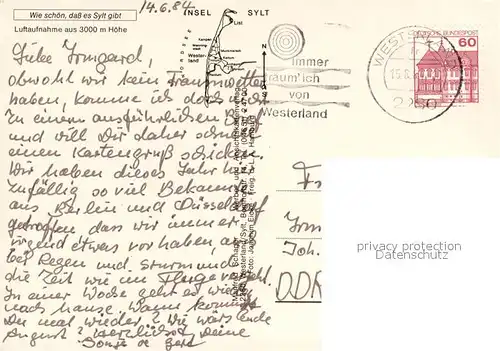 14.6.84
Wie schön, daß es Sylt gibt
Luftaufnahme aus 3000 m Höhe
INSEL SYLT
List
NORDSEE
Kampen
Wester-
land
immer
traum' ich
von
Westerland
WESTERLAND
2280
DEUTSCHE BUNDESPOST
60
Irmgard,
obwohl wir kein Traumwetter
haben, komme ich doch nicht
zu einem ausführlichen Brief
und will Dir daher schnell
einen Kartengruß schicken.
Wir haben dieses Jahr hier
zufällig so viel Bekannte
aus Berlin und Düsseldorf
getroffen, dass wir immer
irgend etwas vor haben, auch
bei Regen und Sturm und
die Zeit wie im Fluge vergeht.
In einer Woche geht es wieder
nach hause. Wann kommst
Du mal wieder? Wie wär's Ende
August? Herzlichst Deine
Fr
Irm
Joh.
DDR
privacy protection
Datenschutz